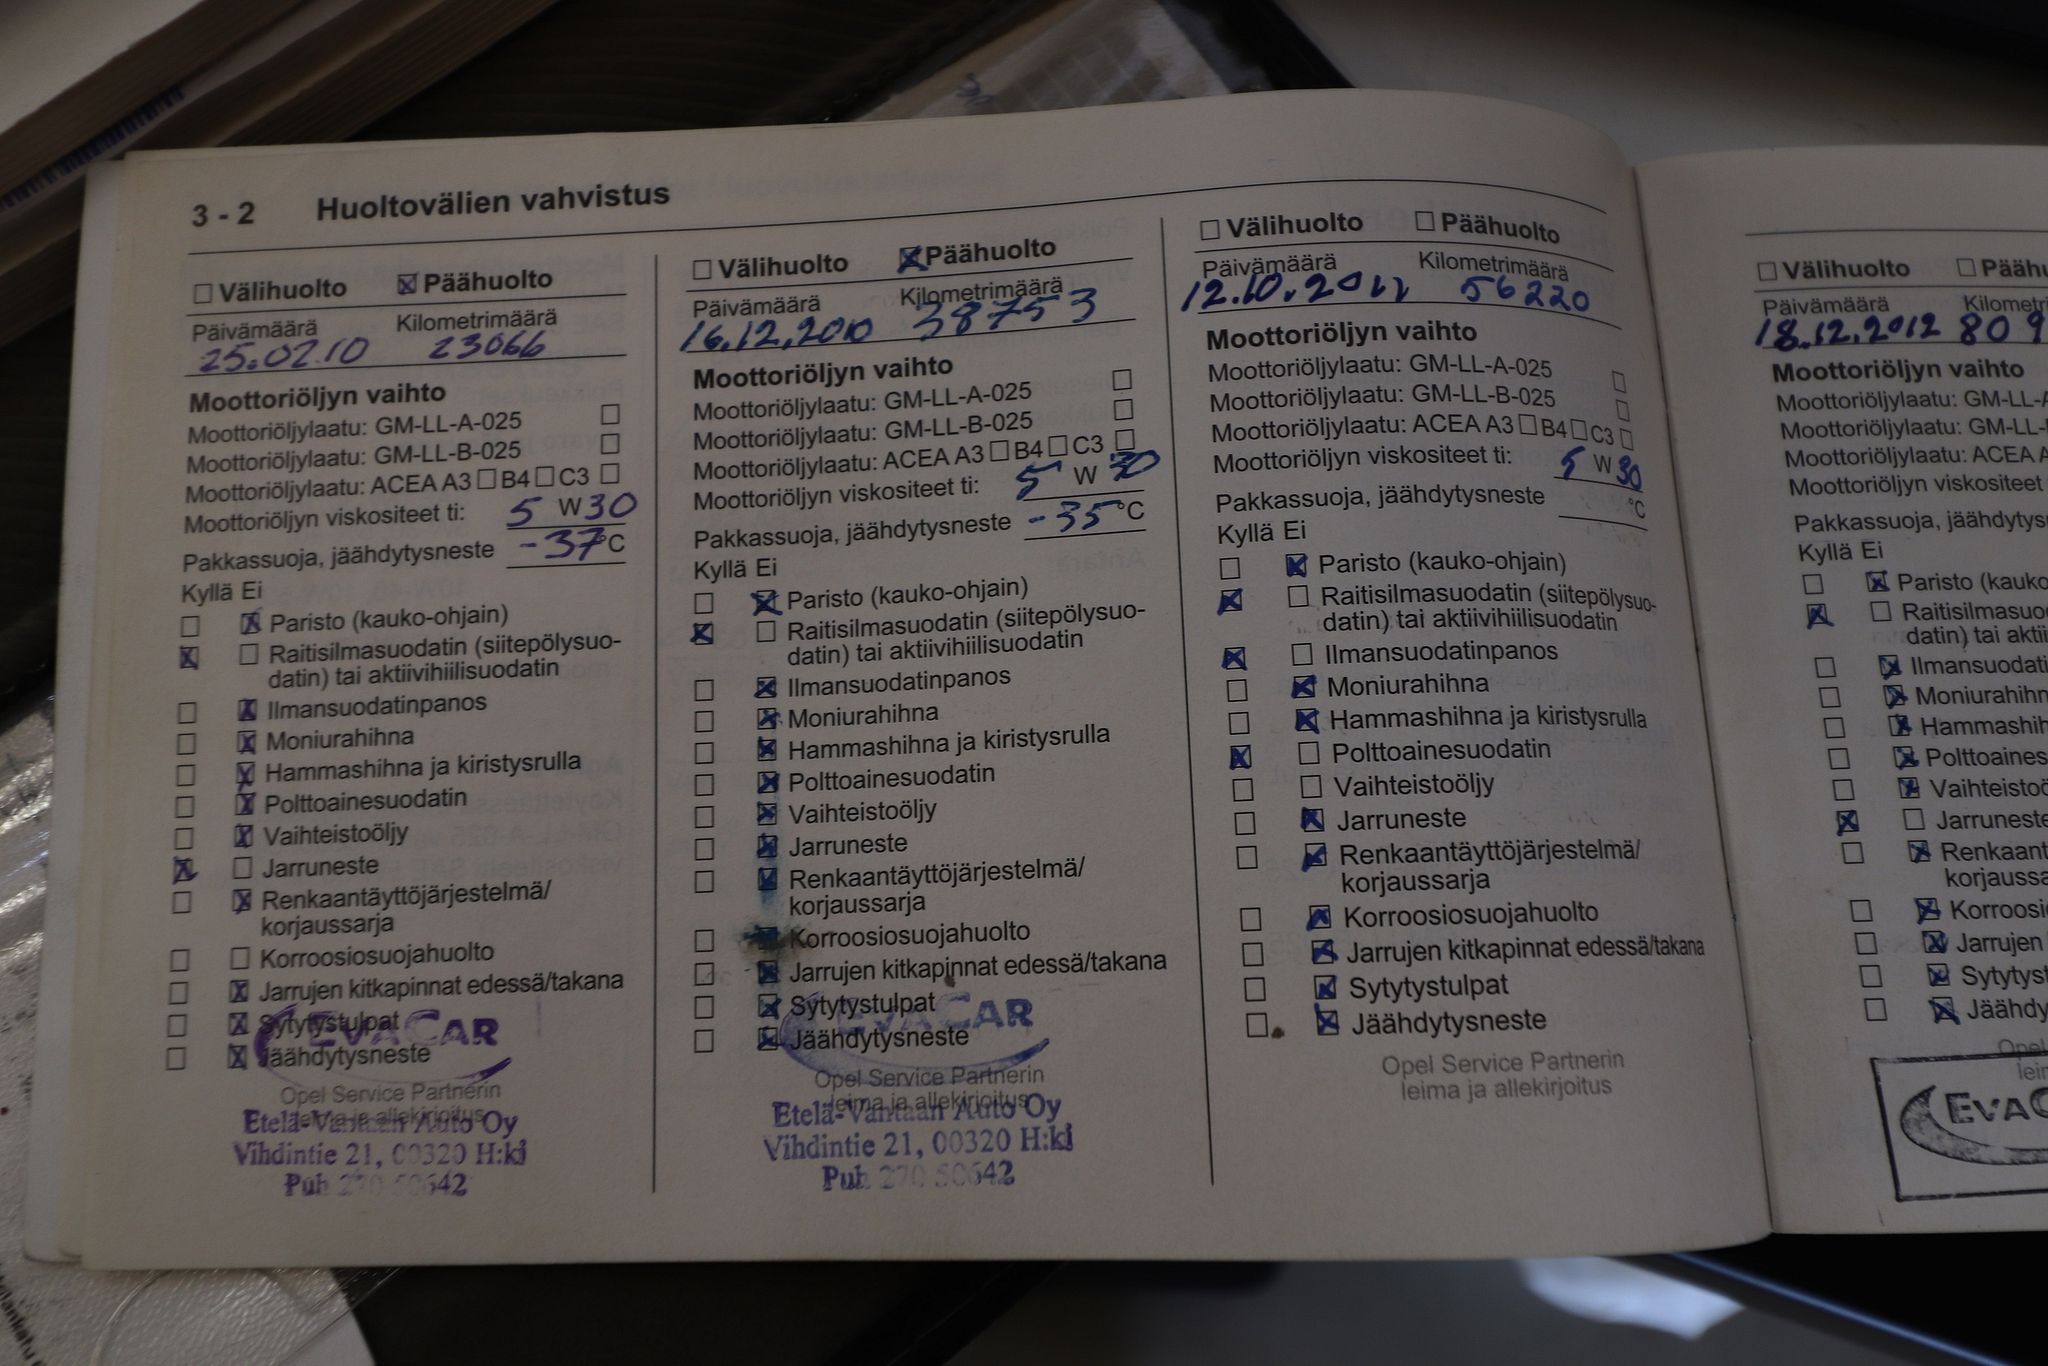 3 - 2 Huoltovälien vahvistus
Välihuolto Päähuolto
Päivämäärä Kilometrimäärä
25.02.10 23066
Moottoriöljyn vaihto
Moottoriöljylaatu: GM-LL-A-025
Moottoriöljylaatu: GM-LL-B-025
Moottoriöljylaatu: ACEA A3 B4 C3
Moottoriöljyn viskositeet ti: 5 W 30
Pakkassuoja, jäähdytysneste -37°C
Kyllä Ei
Paristo (kauko-ohjain)
Raitisilmasuodatin (siitepölysuo-
datin) tai aktiivihiilisuodatin
Ilmansuodatinpanos
Moniurahihna
Hammashihna ja kiristysrulla
Polttoainesuodatin
Vaihteistoöljy
Jarruneste
Renkaantäyttöjärjestelmä/
korjaussarja
Korroosiosuojahuolto
Jarrujen kitkapinnat edessä/takana
Sytytystulpat
EVACAR
Jäähdytysneste
Opel Service Partnerin
leima ja allekirjoitus
Etelä-Vantaan Auto Oy
Vihdintie 21, 00320 H:ki
Puh 270 50642
Välihuolto Päähuolto
Päivämäärä Kilometrimäärä
16.12.2010 38753
Moottoriöljyn vaihto
Moottoriöljylaatu: GM-LL-A-025
Moottoriöljylaatu: GM-LL-B-025
Moottoriöljylaatu: ACEA A3 B4 C3
Moottoriöljyn viskositeet ti: 5 W 30
Pakkassuoja, jäähdytysneste -35°C
Kyllä Ei
Paristo (kauko-ohjain)
Raitisilmasuodatin (siitepölysuo-
datin) tai aktiivihiilisuodatin
Ilmansuodatinpanos
Moniurahihna
Hammashihna ja kiristysrulla
Polttoainesuodatin
Vaihteistoöljy
Jarruneste
Renkaantäyttöjärjestelmä/
korjaussarja
Korroosiosuojahuolto
Jarrujen kitkapinnat edessä/takana
Sytytystulpat
EVACAR
Jäähdytysneste
Opel Service Partnerin
leima ja allekirjoitus
Etelä-Vantaan Auto Oy
Vihdintie 21, 00320 H:ki
Puh 270 50642
Välihuolto Päähuolto
Päivämäärä Kilometrimäärä
12.10.2011 56220
Moottoriöljyn vaihto
Moottoriöljylaatu: GM-LL-A-025
Moottoriöljylaatu: GM-LL-B-025
Moottoriöljylaatu: ACEA A3 B4 C3
Moottoriöljyn viskositeet ti: 5 W 30
Pakkassuoja, jäähdytysneste °C
Kyllä Ei
Paristo (kauko-ohjain)
Raitisilmasuodatin (siitepölysuo-
datin) tai aktiivihiilisuodatin
Ilmansuodatinpanos
Moniurahihna
Hammashihna ja kiristysrulla
Polttoainesuodatin
Vaihteistoöljy
Jarruneste
Renkaantäyttöjärjestelmä/
korjaussarja
Korroosiosuojahuolto
Jarrujen kitkapinnat edessä/takana
Sytytystulpat
Jäähdytysneste
Opel Service Partnerin
leima ja allekirjoitus
Välihuolto Päähu
Päivämäärä Kilometri
18.12.2012 809
Moottoriöljyn vaihto
Moottoriöljylaatu: GM-LL-A
Moottoriöljylaatu: GM-LL-
Moottoriöljylaatu: ACEA A
Moottoriöljyn viskositeet
Pakkassuoja, jäähdytys
Kyllä Ei
Paristo (kauko
Raitisilmasuo
datin) tai akti
Ilmansuodati
Moniurahihn
Hammashih
Polttoaines
Vaihteistoö
Jarruneste
Renkaant
korjaussa
Korroosi
Jarrujen
Sytytyst
Jäähdy
Opel
leim
EVAC